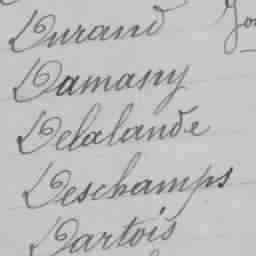 Durand
Damasny
Delalande
Deschamps
Dartois